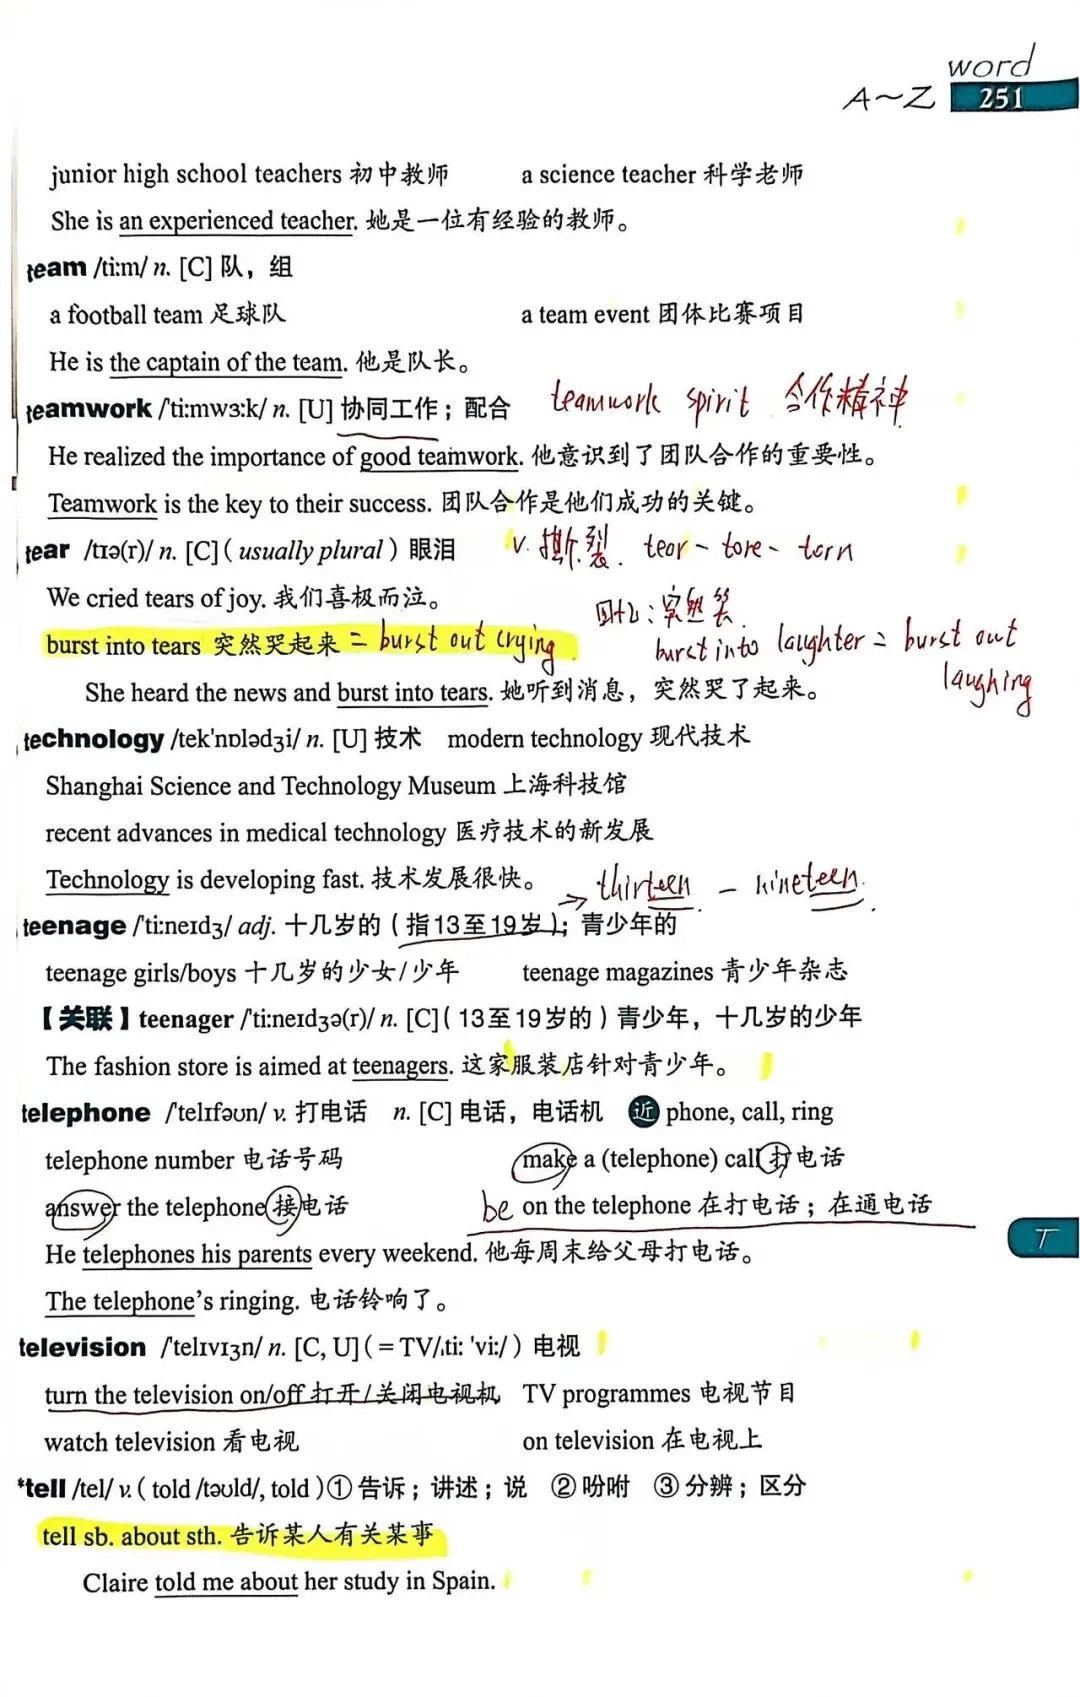 word
A～Z 251
junior high school teachers 初中教师 a science teacher 科学老师
She is an experienced teacher. 她是一位有经验的教师。
team /tiːm/ n. [C] 队，组
a football team 足球队 a team event 团体比赛项目
He is the captain of the team. 他是队长。
teamwork /ˈtiːmwɜːk/ n. [U] 协同工作；配合 teamwork spirit 合作精神
He realized the importance of good teamwork. 他意识到了团队合作的重要性。
Teamwork is the key to their success. 团队合作是他们成功的关键。
tear /tɪə(r)/ n. [C] ( usually plural ) 眼泪 v. 撕裂. tear - tore - torn
We cried tears of joy. 我们喜极而泣。
burst into tears 突然哭起来 = burst out crying
突然笑
burst into laughter = burst out laughing
She heard the news and burst into tears. 她听到消息，突然哭了起来。
technology /tekˈnɒlədʒi/ n. [U] 技术 modern technology 现代技术
Shanghai Science and Technology Museum 上海科技馆
recent advances in medical technology 医疗技术的新发展
Technology is developing fast. 技术发展很快。 → thirteen - nineteen.
teenage /ˈtiːneɪdʒ/ adj. 十几岁的（指13至19岁）；青少年的
teenage girls/boys 十几岁的少女/少年 teenage magazines 青少年杂志
【关联】teenager /ˈtiːneɪdʒə(r)/ n. [C]（13至19岁的）青少年，十几岁的少年
The fashion store is aimed at teenagers. 这家服装店针对青少年。
telephone /ˈtelɪfəʊn/ v. 打电话 n. [C] 电话，电话机 近 phone, call, ring
telephone number 电话号码 make a (telephone) call 打电话
answer the telephone 接电话 be on the telephone 在打电话；在通电话
He telephones his parents every weekend. 他每周末给父母打电话。
The telephone's ringing. 电话铃响了。
T
television /ˈtelɪvɪʒn/ n. [C, U] ( = TV/ˌtiː ˈviː/ ) 电视
turn the television on/off 打开/关闭电视机 TV programmes 电视节目
watch television 看电视 on television 在电视上
*tell /tel/ v. ( told /təʊld/, told ) ① 告诉；讲述；说 ② 吩咐 ③ 分辨；区分
tell sb. about sth. 告诉某人有关某事
Claire told me about her study in Spain.